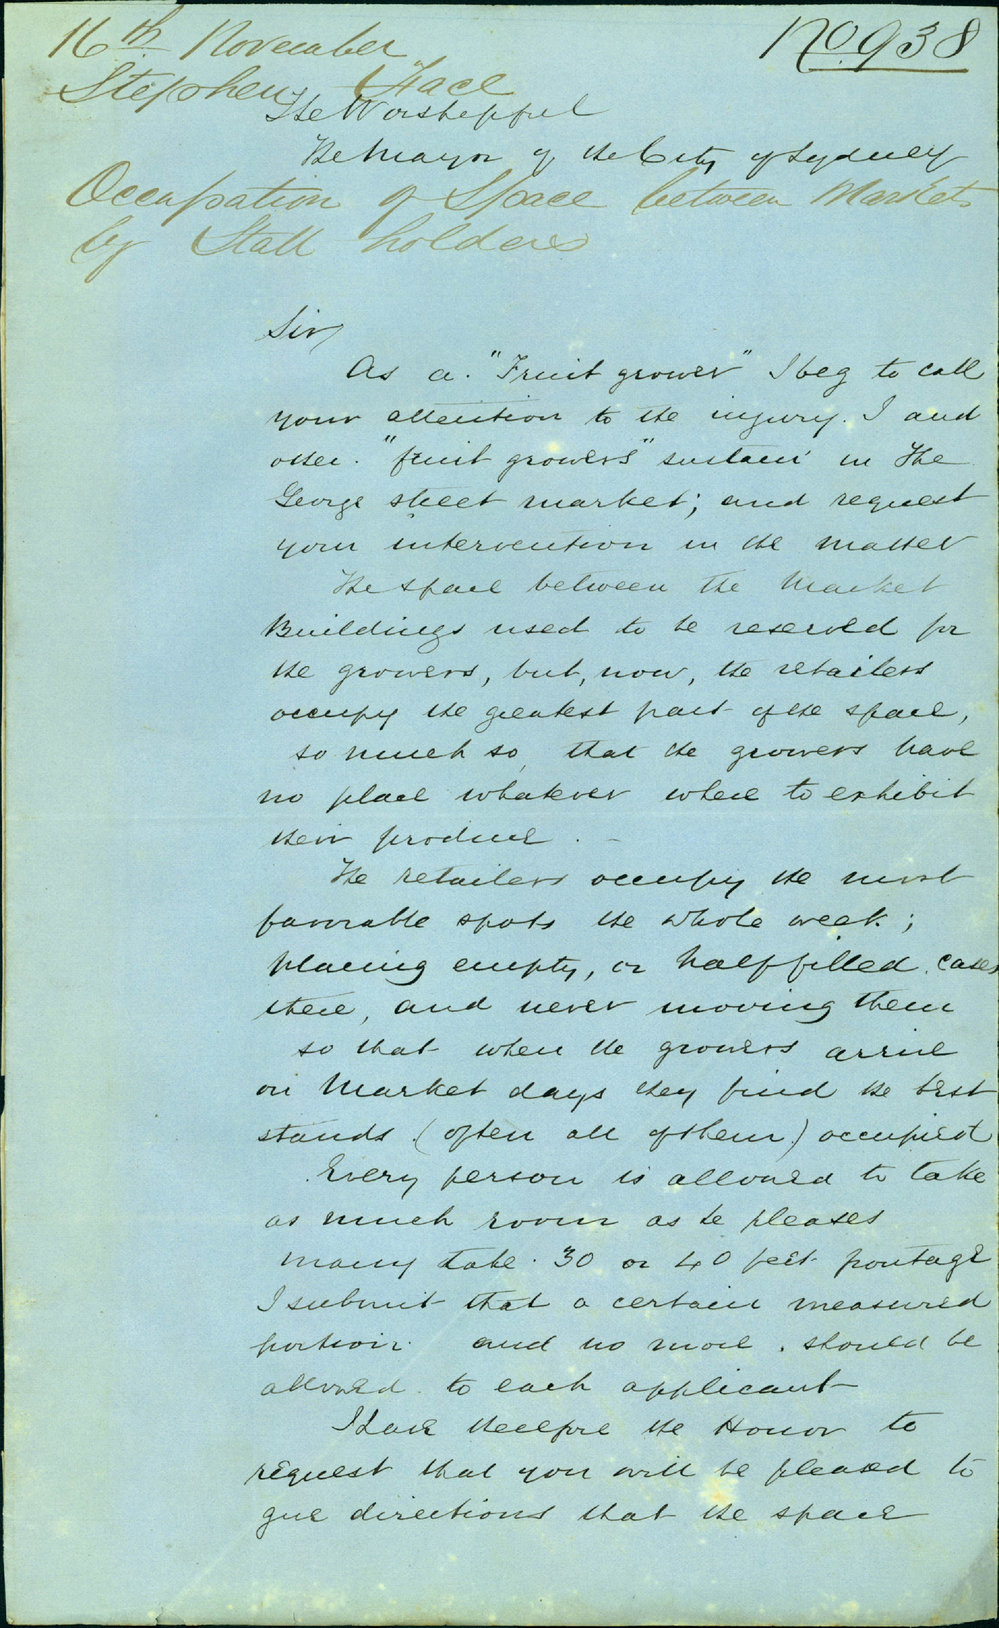 No 938
16th November
Stephen Hace
The Worshepful
The Mayor of the City of Sydney
Occupation of Space between Markets
by Stall holders
Sir
As a "Fruit grower" I beg to call
your attention to the injury. I and
other "fruit growers" sustain in The
George street market; and request
your intervention in the matter
The space between the Market
Buildings used to be reserved for
the growers, but, now, the retailers
occupy the greatest part of the space,
so much so, that the growers have
no place whatever where to exhibit
their produce.
The retailers occupy the most
favorable spots the whole week;
placing empty, or half filled cases
there, and never moving them
so that when the growers arrive
on Market days they find the best
stands (often all of them) occupied
Every person is allowed to take
as much room as he pleases
many take 30 or 40 feet frontage
I submit that a certain measured
portion and no more should be
allowed to each applicant
I have therefore the Honor to
request that you will be pleased to
give directions that the space